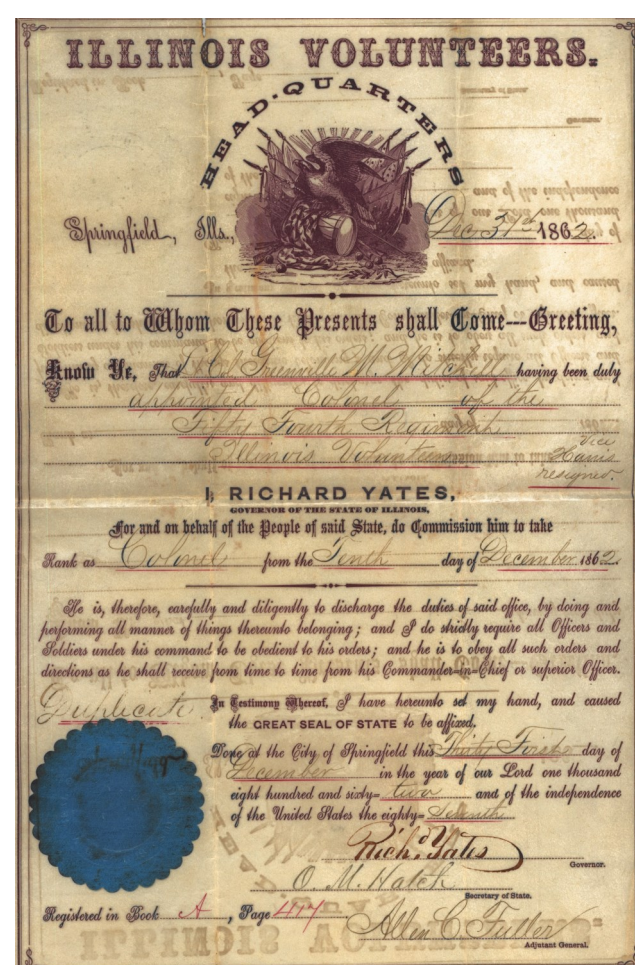 ILLINOIS VOLUNTEERS.
HEAD-QUARTERS
Springfield, Ills., Dec 31st 1862.
To all to Whom These Presents shall Come---Greeting,
Know Ye, That Lt Col Greenville M. Mitchell having been duly
appointed Colonel of the
Fifty Fourth Regiment
Illinois Volunteers vice
Harris
resigned.
I, RICHARD YATES,
GOVERNOR OF THE STATE OF ILLINOIS,
For and on behalf of the People of said State, do Commission him to take
Rank as Colonel from the Tenth day of December 1862.
He is, therefore, carefully and diligently to discharge the duties of said office, by doing and
performing all manner of things thereunto belonging; and I do strictly require all Officers and
Soldiers under his command to be obedient to his orders; and he is to obey all such orders and
directions as he shall receive from time to time from his Commander-in-Chief or superior Officer.
Duplicate
In Testimony Whereof, I have hereunto set my hand, and caused
the GREAT SEAL OF STATE to be affixed.
Done at the City of Springfield this Thirty First day of
December in the year of our Lord one thousand
eight hundred and sixty-two and of the independence
of the United States the eighty-Seventh
Rich. Yates
Governor.
O. M. Hatch
Secretary of State.
Registered in Book A, Page 417
Allen C. Fuller
Adjutant General.